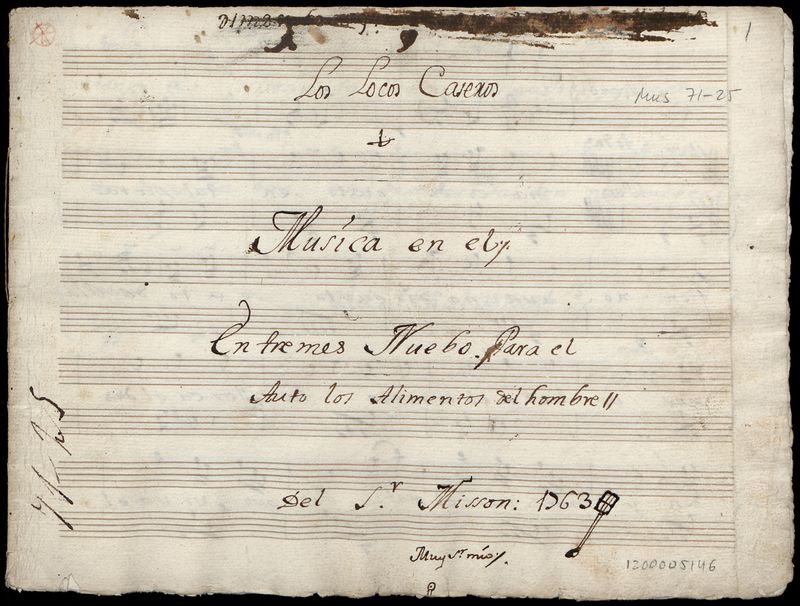 1
Los Locos Caseros
Mus 71-25
Musica en el
Entremes Nuebo. Para el
Auto los Alimentos del hombre
Del S.r Misson: 1763
71-25
Muy Sr. mio
1200005146